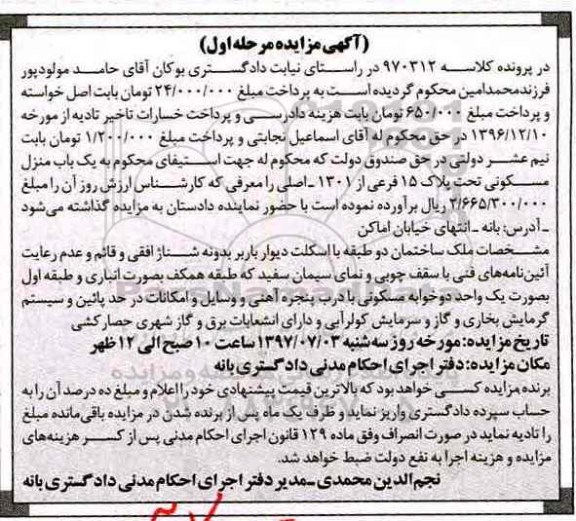 (آگهی مزایده مرحله اول)
در پرونده کلاسه ۹۷۰۳۱۲ در راستای نیابت دادگستری بوکان آقای حامد مولودپور
فرزند محمدامین محکوم گردیده است به پرداخت مبلغ ۲۴/۰۰۰/۰۰۰ تومان بابت اصل خواسته
و پرداخت مبلغ ۶۵۰/۰۰۰ تومان بابت هزینه دادرسی و پرداخت خسارات تاخیر تادیه از مورخه
۱۳۹۶/۱۲/۱۰ در حق محکوم له آقای اسماعیل نجابتی و پرداخت مبلغ ۱/۲۰۰/۰۰۰ تومان بابت
نیم عشر دولتی در حق صندوق دولت که محکوم له جهت استیفای محکوم به یک باب منزل
مسکونی تحت پلاک ۱۵ فرعی از ۱۳۰۱ ـ اصلی را معرفی که کارشناس ارزش روز آن را مبلغ
۲/۶۶۵/۳۰۰/۰۰۰ ریال برآورده نموده است با حضور نماینده دادستان به مزایده گذاشته می‌شود
ـ آدرس: بانه ـ انتهای خیابان اماکن
مشخصات ملک ساختمان دو طبقه با اسکلت دیوار باربر بدونه شناژ افقی و قائم و عدم رعایت
آئین‌نامه‌های فنی با سقف چوبی و نمای سیمان سفید که طبقه همکف بصورت انباری و طبقه اول
بصورت یک واحد دوخوابه مسکونی با درب پنجره آهنی و وسایل و امکانات در حد پائین و سیستم
گرمایش بخاری و گاز و سرمایش کولرآبی و دارای انشعابات برق و گاز شهری حصارکشی
تاریخ مزایده: مورخه روز سه شنبه ۱۳۹۷/۰۷/۰۳ ساعت ۱۰ صبح الی ۱۲ ظهر
مکان مزایده: دفتر اجرای احکام مدنی دادگستری بانه
برنده مزایده کسی خواهد بود که بالاترین قیمت پیشنهادی خود را اعلام و مبلغ ده درصد آن را به
حساب سپرده دادگستری واریز نماید و ظرف یک ماه پس از برنده شدن در مزایده باقی‌مانده مبلغ
را تادیه نماید در صورت انصراف وفق ماده ۱۲۹ قانون اجرای احکام مدنی پس از کسر هزینه‌های
مزایده و هزینه اجرا به نفع دولت ضبط خواهد شد.
نجم‌الدین محمدی ـ مدیر دفتر اجرای احکام مدنی دادگستری بانه